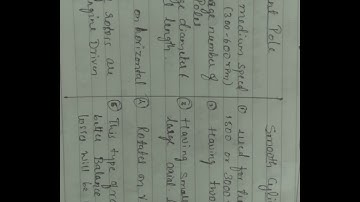 nt Pole
medium speed
(300-600rpm)
age number of
Poles
ge diameter &
length.
on horizontal
rotors are
ngine Driven
Smooth Cylin
① used for
1500 or 3000
② Having two
③ Having small
large axial
④ Rotates on
⑤ This type of r
better Balance
losses will be